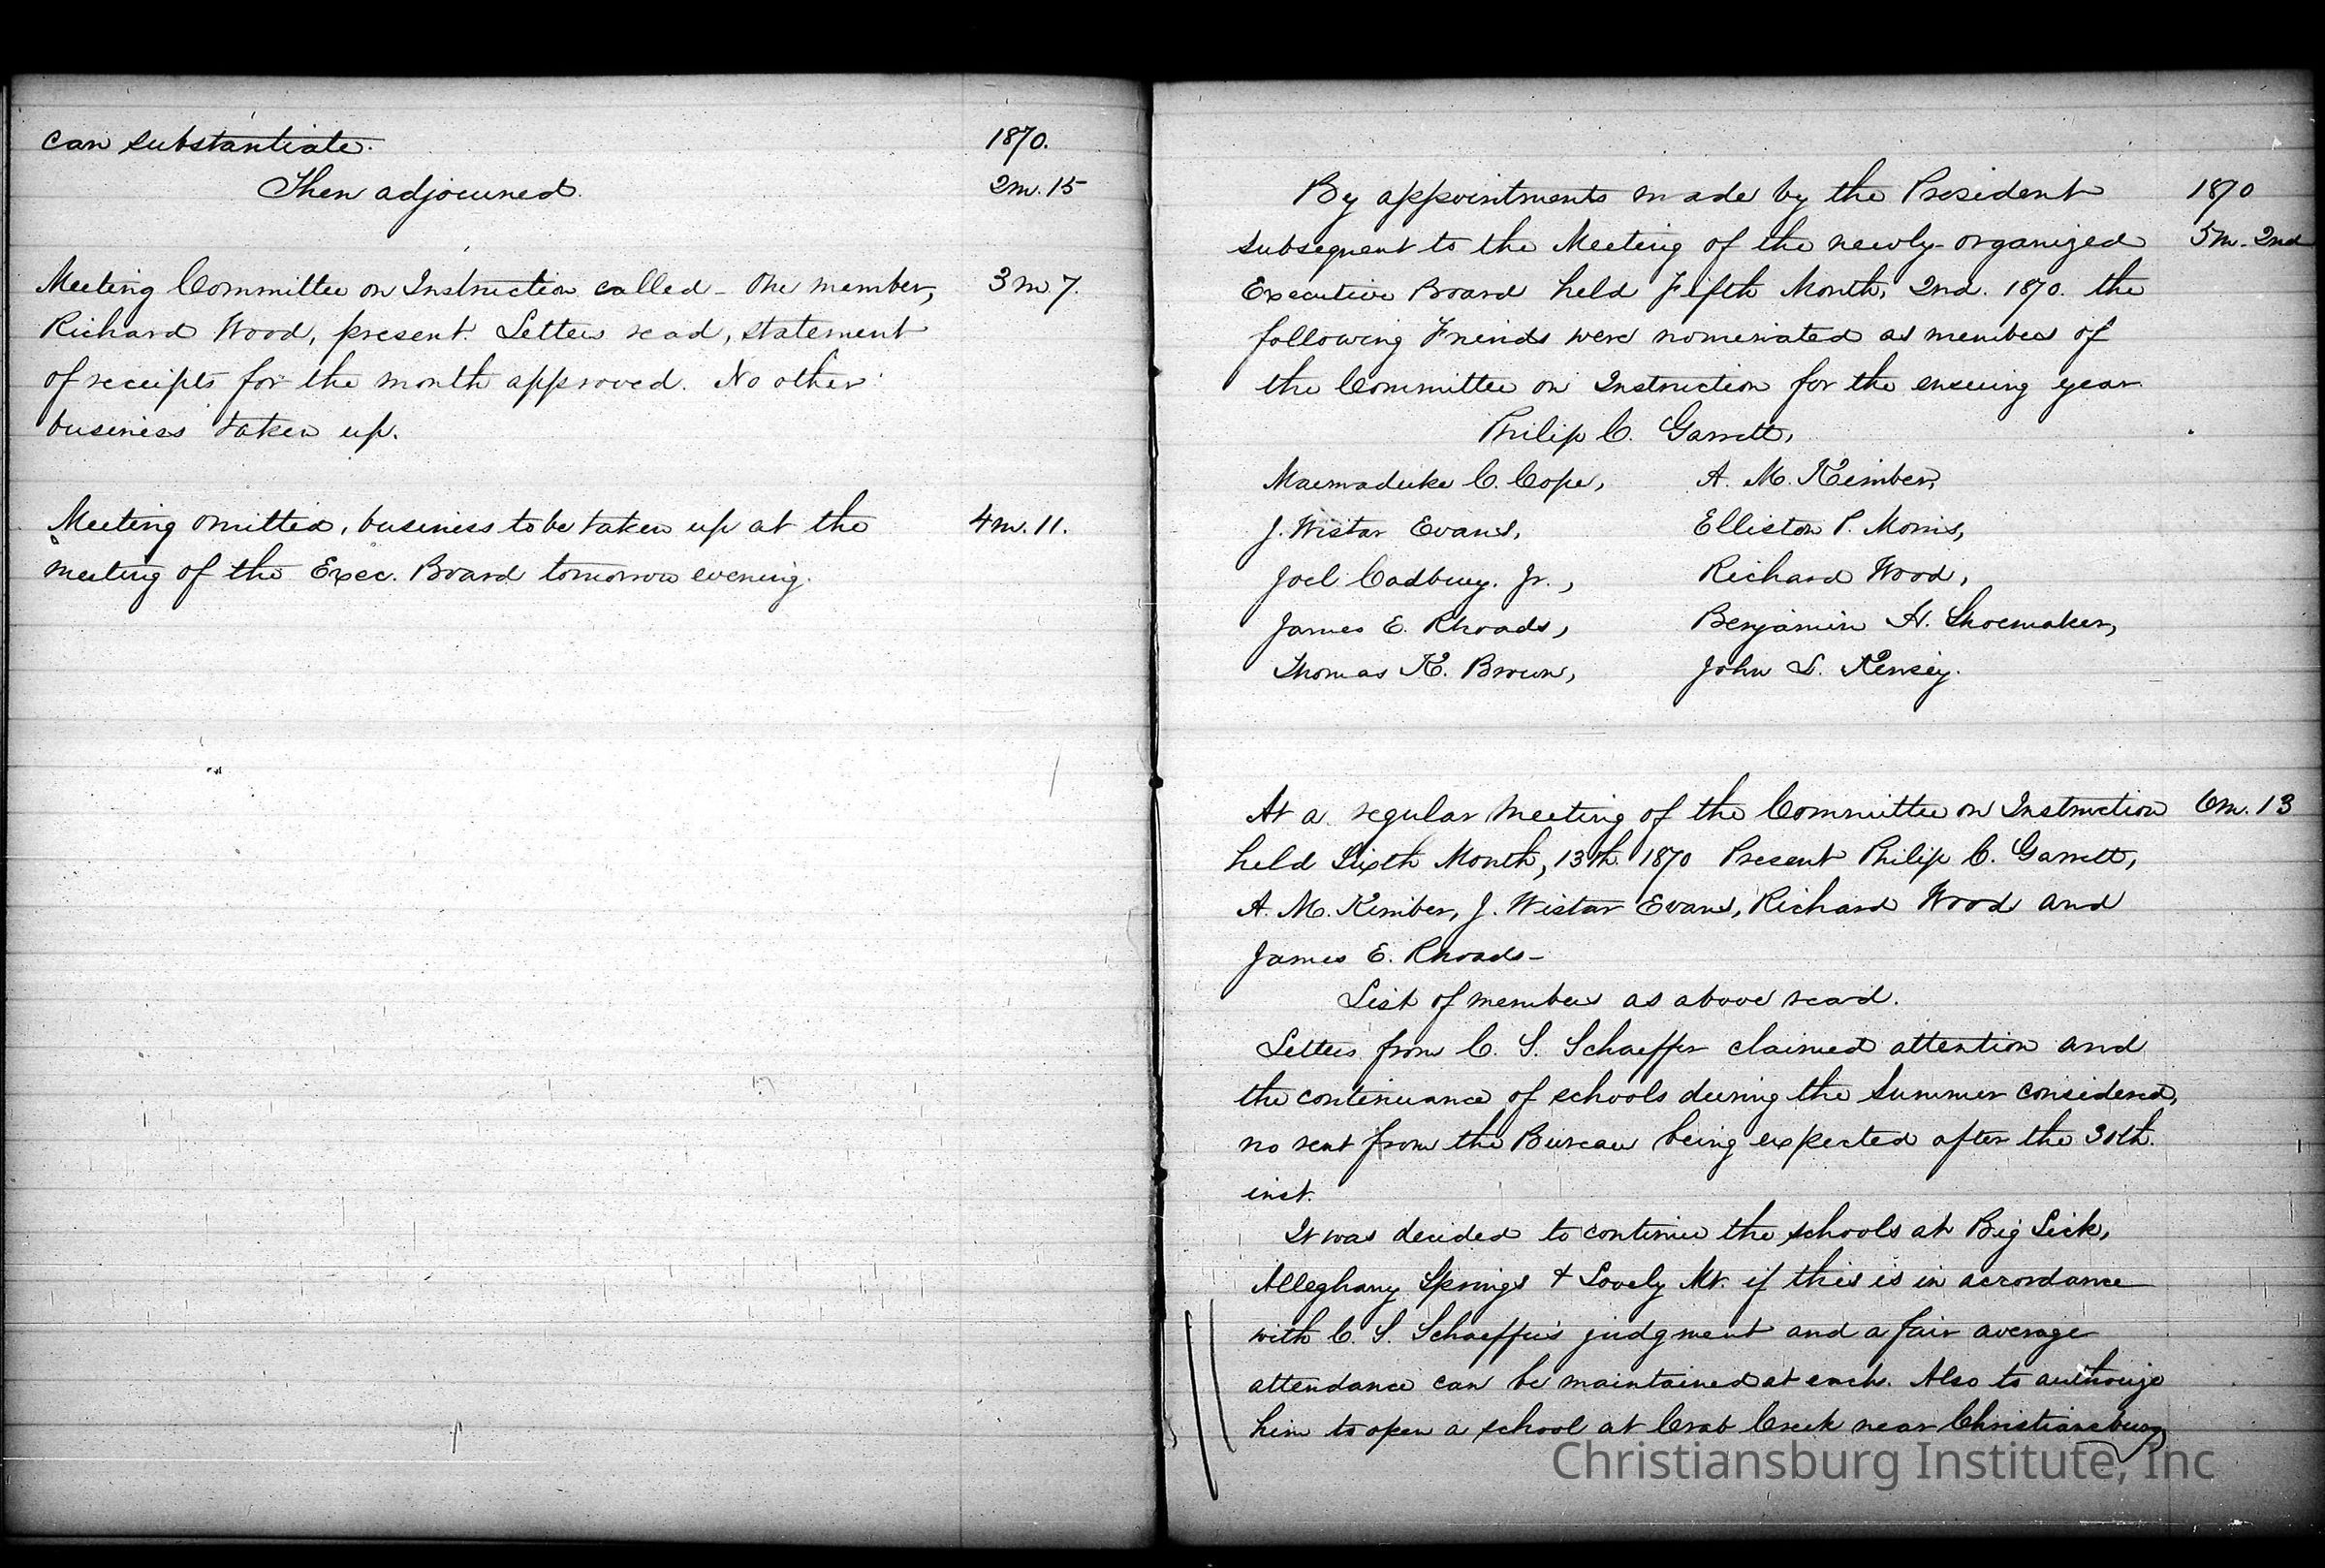 can substantiate.
1870.
Then adjourned.
2m. 15
Meeting Committee on Instruction called - One member,
3m 7.
Richard Wood, present. Letters read, statement
of receipts for the month approved. No other
business taken up.
Meeting omitted, business to be taken up at the
4m. 11.
meeting of the Exec. Board tomorrow evening.
By appointments made by the President
1870
subsequent to the Meeting of the newly-organized
5m. 2nd
Executive Board held Fifth Month, 2nd. 1870. the
following Friends were nominated as members of
the Committee on Instruction for the ensuing year
Philip C. Garrett,
Marmaduke C. Cope, A. M. Kimber,
J. Wistar Evans, Elliston P. Morris,
Joel Cadbury. Jr., Richard Wood,
James E. Rhoads, Benjamin H. Shoemaker,
Thomas K. Brown, John L. Kensey.
At a regular Meeting of the Committee on Instruction
6m. 13
held Sixth Month, 13th. 1870 Present Philip C. Garrett,
A. M. Kimber, J. Wistar Evans, Richard Wood and
James E. Rhoads-
List of members as above read.
Letters from C. S. Schaeffer claimed attention and
the continuance of schools during the Summer considered,
no rent from the Bureau being expected after the 30th.
inst.
It was decided to continue the schools at Big Lick,
Alleghany Springs & Lovely Mt. if this is in accordance
with C. S. Schaeffer's judgment and a fair average
attendance can be maintained at each. Also to authorize
him to open a school at Crab Creek near Christiansburg
Christiansburg Institute, Inc